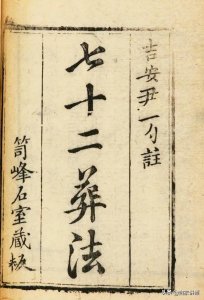 吉安尹一勺註
七十二葬法
笥峰石室藏板